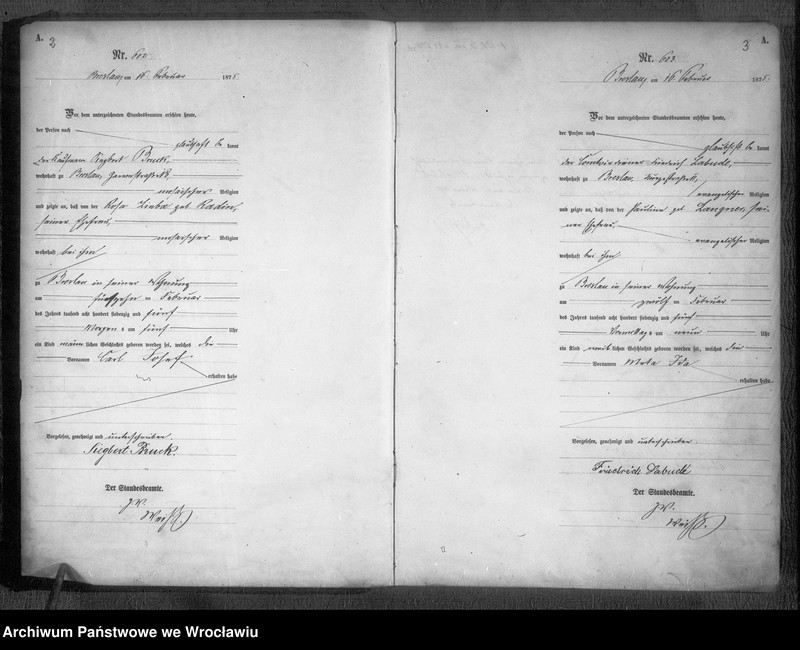 A. 2
Nr. 602
Breslau, am 16. Februar 1875.
Vor dem unterzeichneten Standesbeamten erschien heute,
der Person nach
be kannt
der Kaufmann Siegbert Bruck,
wohnhaft zu Breslau,
mosaischer Religion
und zeigte an, daß von der Rosa geb.
seiner Ehefrau,
mosaischer Religion
wohnhaft bei ihm
zu Breslau in seiner Wohnung
am fünfzehn ten Februar
des Jahres tausend acht hundert siebenzig und fünf
Morgens um fünf Uhr
ein Kind männlichen Geschlechts geboren worden sei, welches die
Vornamen Carl Josef
erhalten habe
Vorgelesen, genehmigt und unterschrieben.
Siegbert Bruck.
Der Standesbeamte.
J. V.
3 A.
Nr. 603
Breslau, am 16. Februar 1875.
Vor dem unterzeichneten Standesbeamten erschien heute,
der Person nach
be kannt
der Friedrich Labude,
wohnhaft zu Breslau,
evangelischer Religion
und zeigte an, daß von der Pauline geb. Langner, sei-
ner Ehefrau,
evangelischer Religion
wohnhaft bei ihm
zu Breslau in seiner Wohnung
am zwölf ten Februar
des Jahres tausend acht hundert siebenzig und fünf
Vormittags um neun Uhr
ein Kind weiblichen Geschlechts geboren worden sei, welches die
Vornamen Ida
erhalten habe
Vorgelesen, genehmigt und unterschrieben.
Friedrich Labude
Der Standesbeamte.
J. V.
Archiwum Państwowe we Wrocławiu